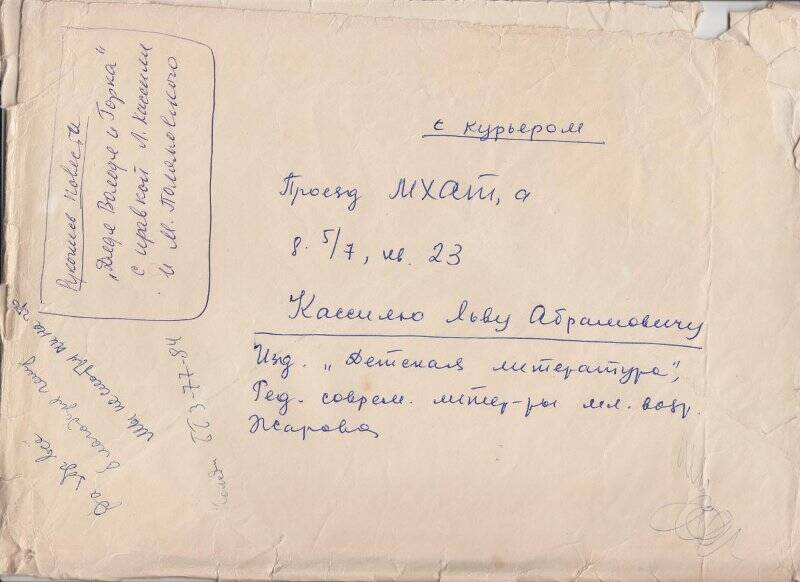 с курьером
Проезд МХАТ, а
д. 5/7, кв. 23
Кассилю Льву Абрамовичу
Изд. „Детская литература",
Ред. соврем. литер-ры мл. возр.
Жарова
Рукопись повести
„Дядя Володя и Горка"
с правкой Л. Кассиля
и М. Поляновского
223-77-84
За всё